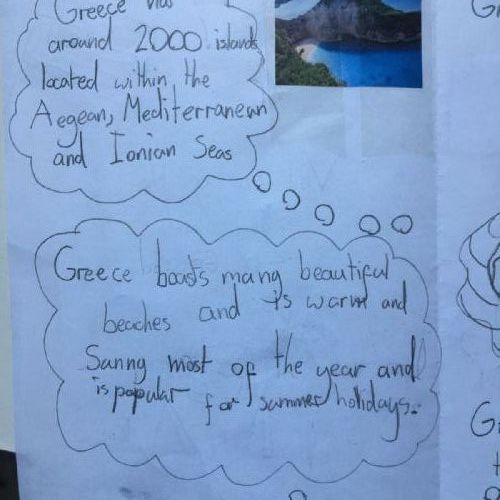 Greece has
around 2000 islands
located within the
Aegean, Mediterranean
and Ionian Seas
Greece boasts many beautiful
beaches and is warm and
Sanny most of the year and
is popular for summer holidays.
G
G